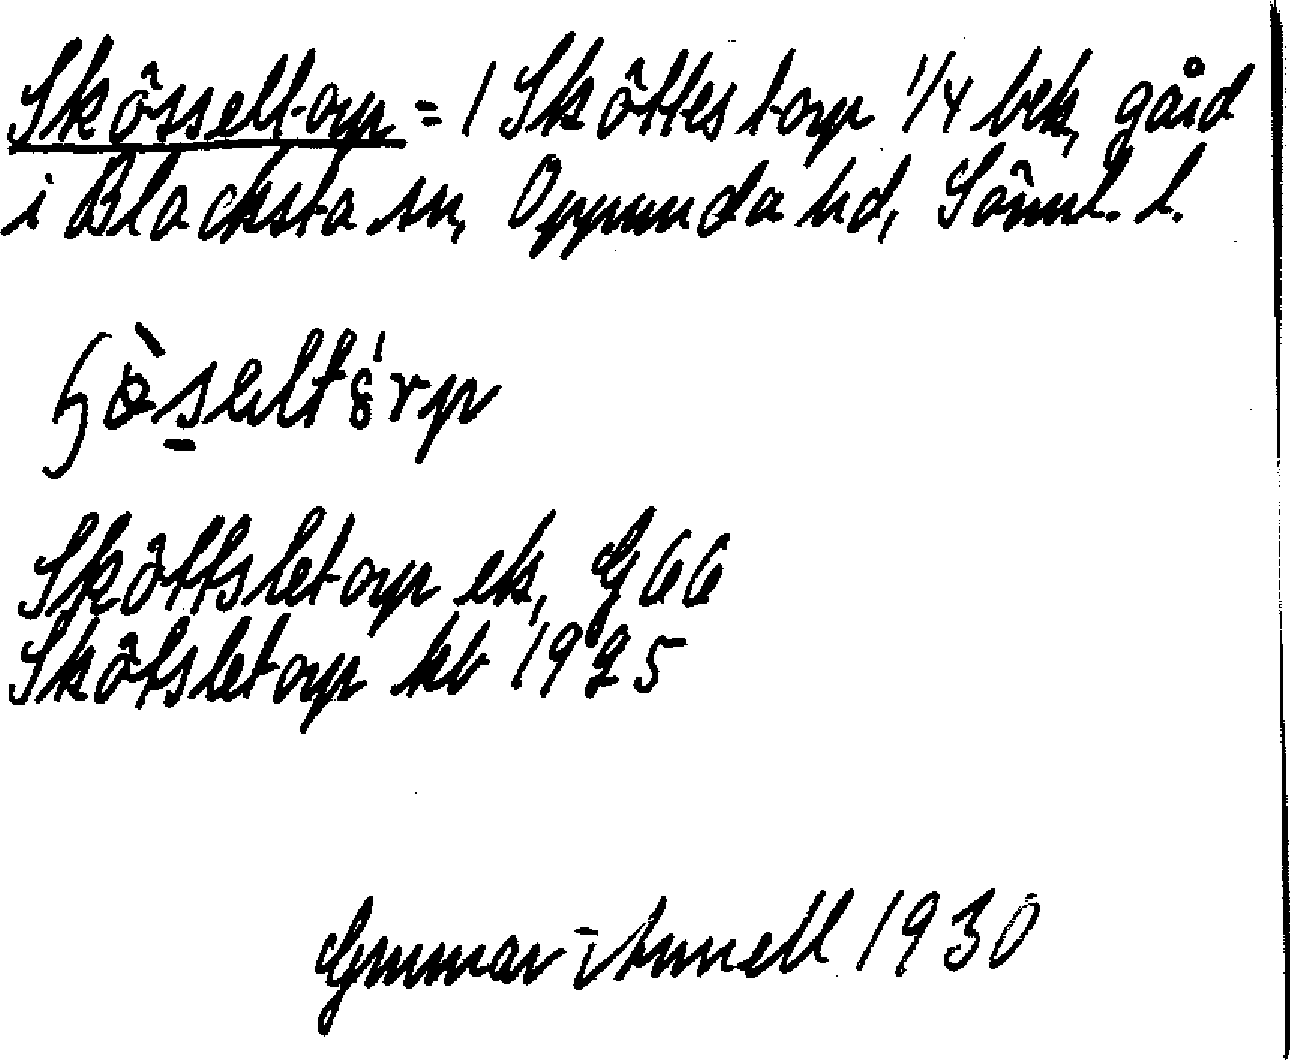 Skösseltorp = 1 Sköttestorp 1/4 bek, gård
i Blacksta sn, Oppunda hd, Sörml. l.
Sköttsletorp ek, G 66
Skötsletorp kb 1925
Gunnar 1930